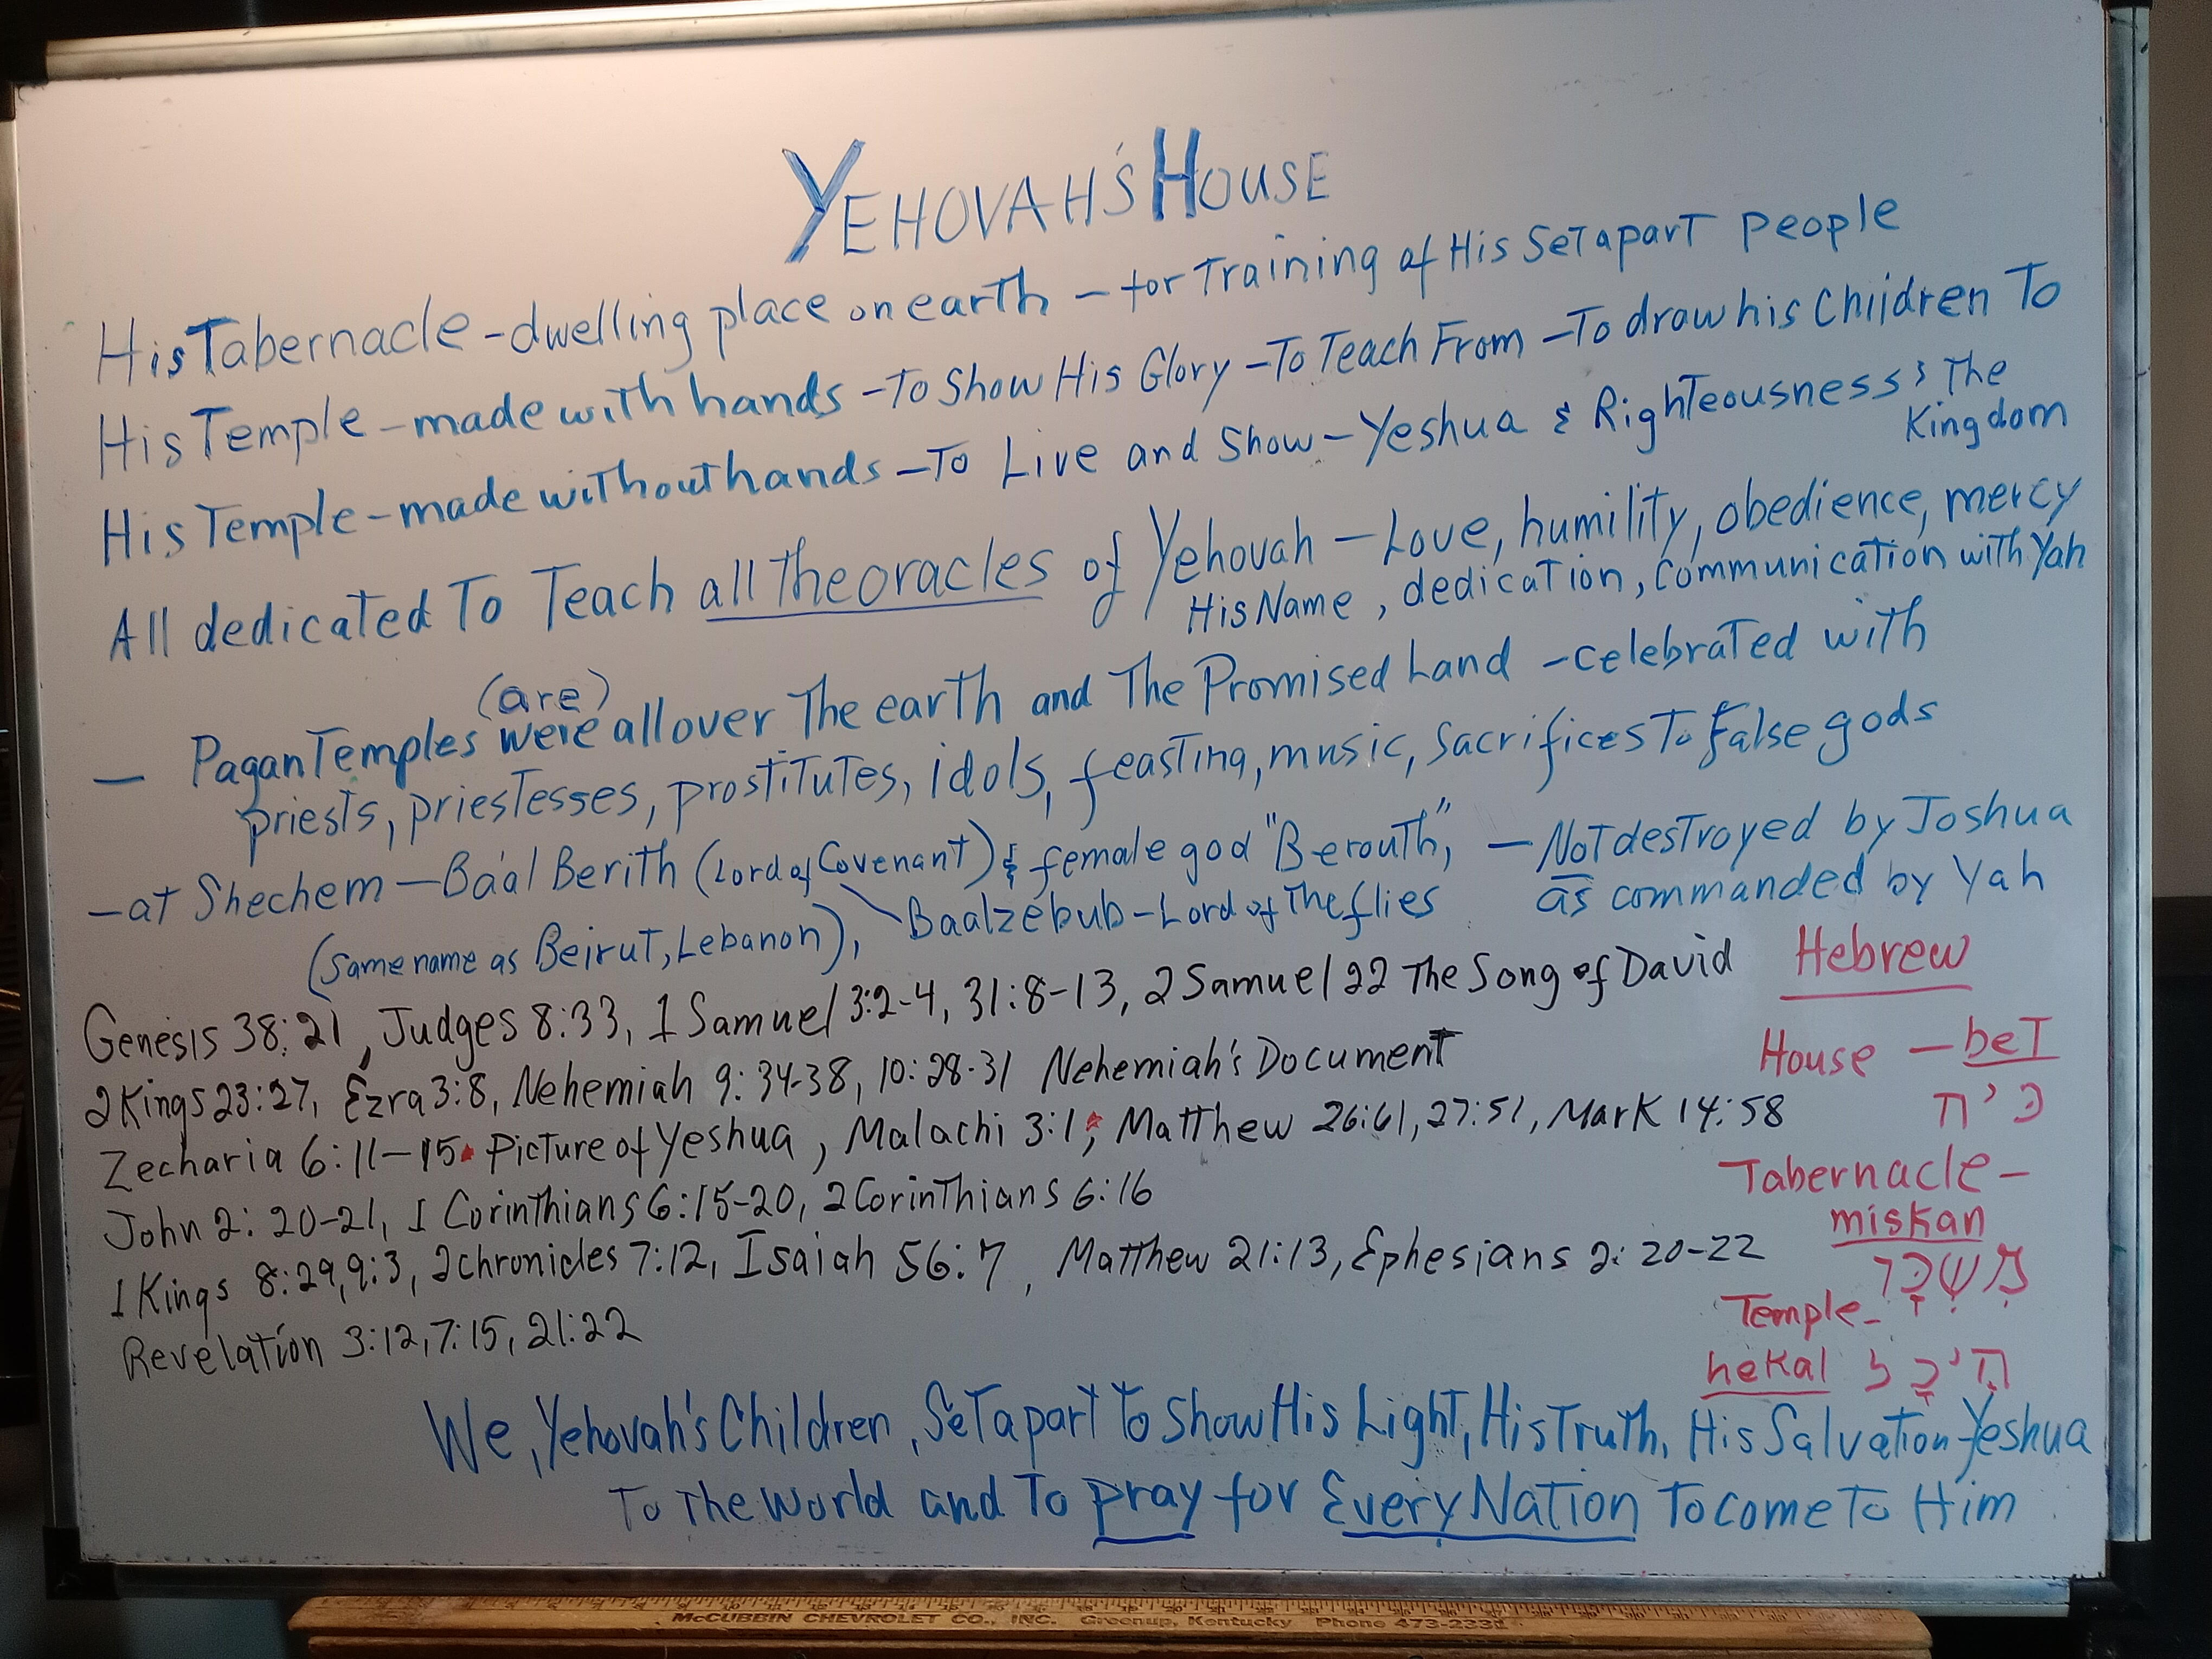 YEHOVAH'S HOUSE
His Tabernacle - dwelling place on earth - for Training of His Set apart people
His Temple - made with hands - To Show His Glory - To Teach From - To draw his Children To
His Temple - made without hands - To Live and Show - Yeshua & Righteousness & The Kingdom
All dedicated To Teach all the oracles of Yehovah - Love, humility, obedience, mercy
His Name, dedication, communication with Yah
(are)
- Pagan Temples were all over The earth and The Promised Land - celebrated with
priests, priestesses, prostitutes, idols, feasting, music, sacrifices To false gods
- at Shechem - Ba'al Berith (Lord of Covenant) & female god "Berouth," - Not destroyed by Joshua
(same name as Beirut, Lebanon), Baalzebub - Lord of The flies as commanded by Yah
Genesis 38:21, Judges 8:33, 1 Samuel 3:2-4, 31:8-13, 2 Samuel 22 The Song of David
2 Kings 23:27, Ezra 3:8, Nehemiah 9:34-38, 10:28-31 Nehemiah's Document
Zecharia 6:11-15 • Picture of Yeshua, Malachi 3:1; Matthew 26:61, 27:51, Mark 14:58
John 2:20-21, 1 Corinthians 6:15-20, 2 Corinthians 6:16
1 Kings 8:29, 9:3, 2 chronicles 7:12, Isaiah 56:7, Matthew 21:13, Ephesians 2:20-22
Revelation 3:12, 7:15, 21:22
Hebrew
House - bet
Tabernacle -
miskan
Temple -
hekal
We, Yehovah's Children, Set apart To Show His Light, His Truth, His Salvation Yeshua
To The World and To pray for Every Nation To come To Him
McCUBBIN CHEVROLET CO., INC. Greenup, Kentucky Phone 473-2331